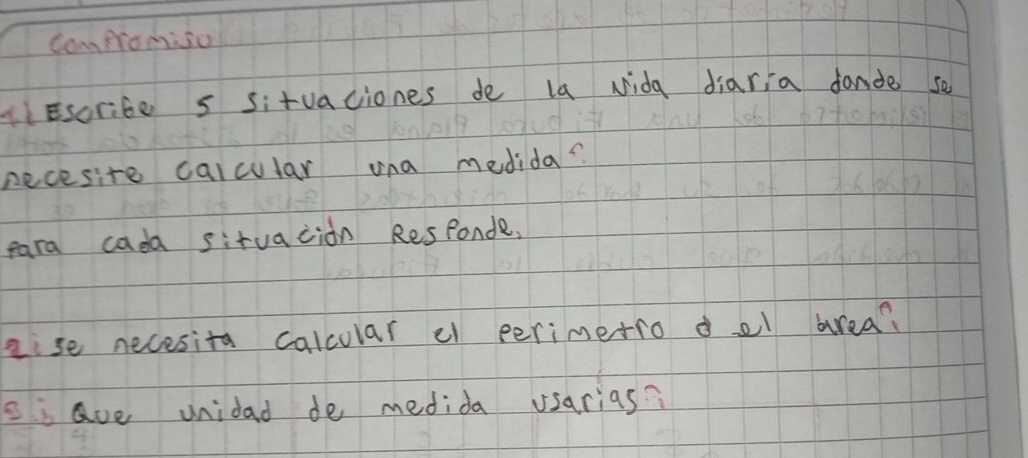 Compromiso
1) Escribe 5 situaciones de la vida diaria donde se
necesite calcular una medida?
para cada situación Responde.
2¿ se necesita calcular el perimetro o el área?
3¿ Que unidad de medida usarías?